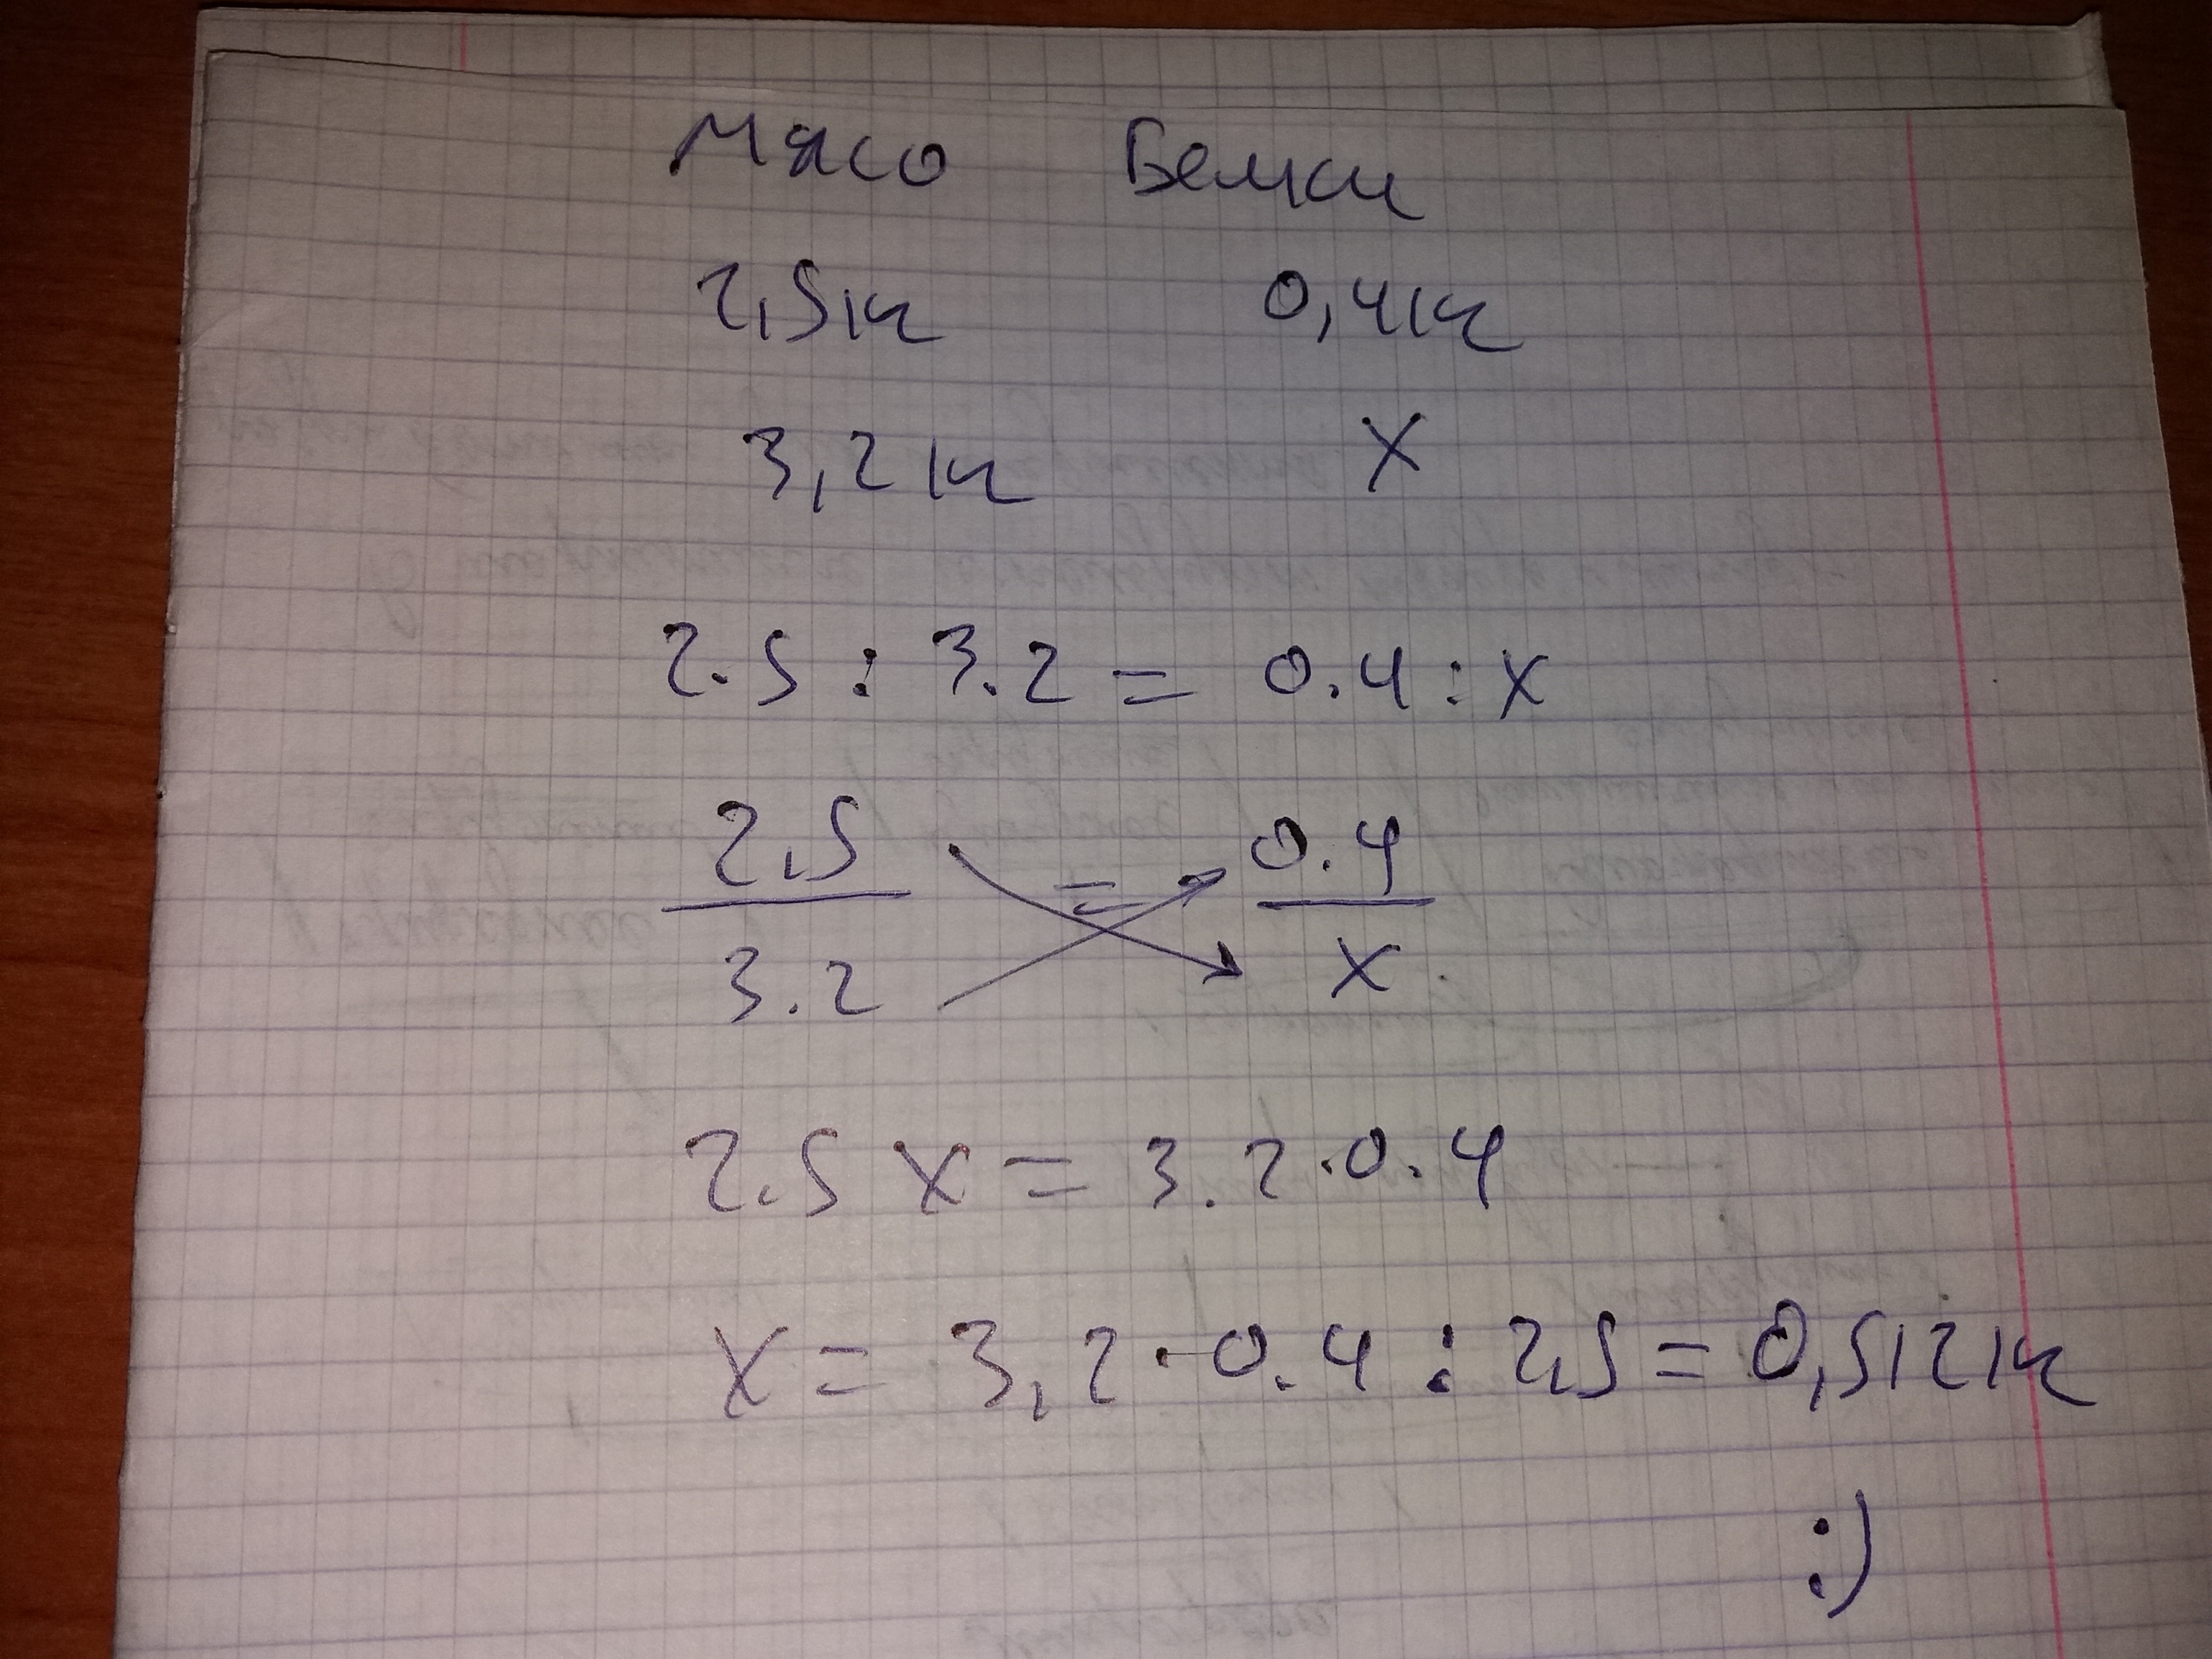 Мясо Белки
2,5кг 0,4кг
3,2кг x
2.5 : 3.2 = 0.4 : x
2,5 = 0.4
3.2 x
2.5 x = 3.2 · 0.4
x = 3,2 · 0.4 : 2,5 = 0,512кг
:)